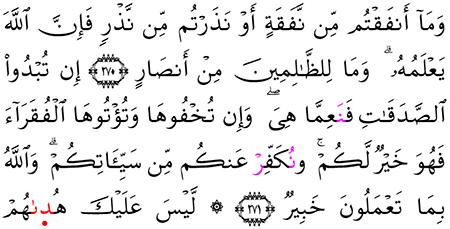 وَمَآ أَنفَقْتُم مِّن نَّفَقَةٍ أَوْ نَذَرْتُم مِّن نَّذْرٍ فَإِنَّ ٱللَّهَ
يَعْلَمُهُۥ ۗ وَمَا لِلظَّٰلِمِينَ مِنْ أَنصَارٍ ٢٧٠ إِن تُبْدُوا۟
ٱلصَّدَقَٰتِ فَنَعِمَّا هِىَ ۖ وَإِن تُخْفُوهَا وَتُؤْتُوهَا ٱلْفُقَرَآءَ
فَهُوَ خَيْرٌ لَّكُمْ ۚ وَنُكَفِّرْ عَنكُم مِّن سَيِّـَٔاتِكُمْ ۗ وَٱللَّهُ
بِمَا تَعْمَلُونَ خَبِيرٌ ٢٧١ ۞ لَّيْسَ عَلَيْكَ هُدىٰهُمْ